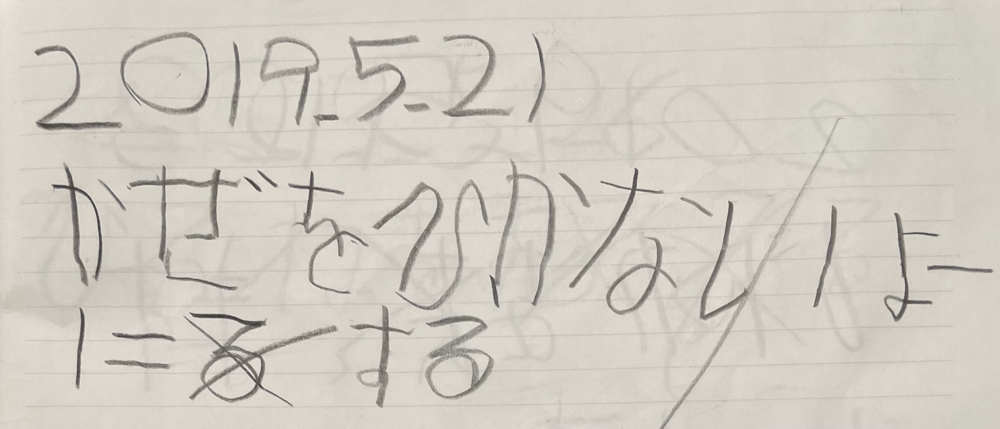 2019.5.21
かぜをひかないよー
にする